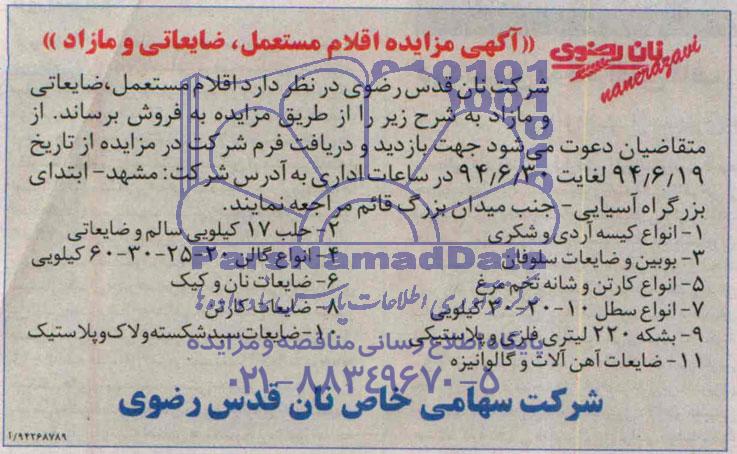 نان رضوی
nanerazavi
«آگهی مزایده اقلام مستعمل، ضایعاتی و مازاد»
شرکت نان قدس رضوی در نظر دارد اقلام مستعمل،ضایعاتی
و مازاد به شرح زیر را از طریق مزایده به فروش برساند. از
متقاضیان دعوت می‌شود جهت بازدید و دریافت فرم شرکت در مزایده از تاریخ
۹۴/۶/۱۹ لغایت ۹۴/۶/۳۰ در ساعات اداری به آدرس شرکت: مشهد- ابتدای
بزرگراه آسیایی- جنب میدان بزرگ قائم مراجعه نمایند.
۱- انواع کیسه آردی و شکری
۲- حلب ۱۷ کیلویی سالم و ضایعاتی
۳- بوبین و ضایعات سلوفان
۴- انواع گالن ۲۰-۲۵-۳۰-۶۰ کیلویی
۵- انواع کارتن و شانه تخم مرغ
۶- ضایعات نان و کیک
۷- انواع سطل ۱۰-۲۰-۳۰ کیلویی
۸- ضایعات کارتن
۹- بشکه ۲۲۰ لیتری فلزی و پلاستیکی
۱۰- ضایعات سبد شکسته و لاک و پلاستیک
۱۱- ضایعات آهن آلات و گالوانیزه
شرکت سهامی خاص نان قدس رضوی
۹۴۲۶۸۷۸۹/آ
ParsNamadData
پایگاه اطلاع رسانی مناقصه و مزایده
۰۲۱-۸۸۳۴۹۶۷۰-۵